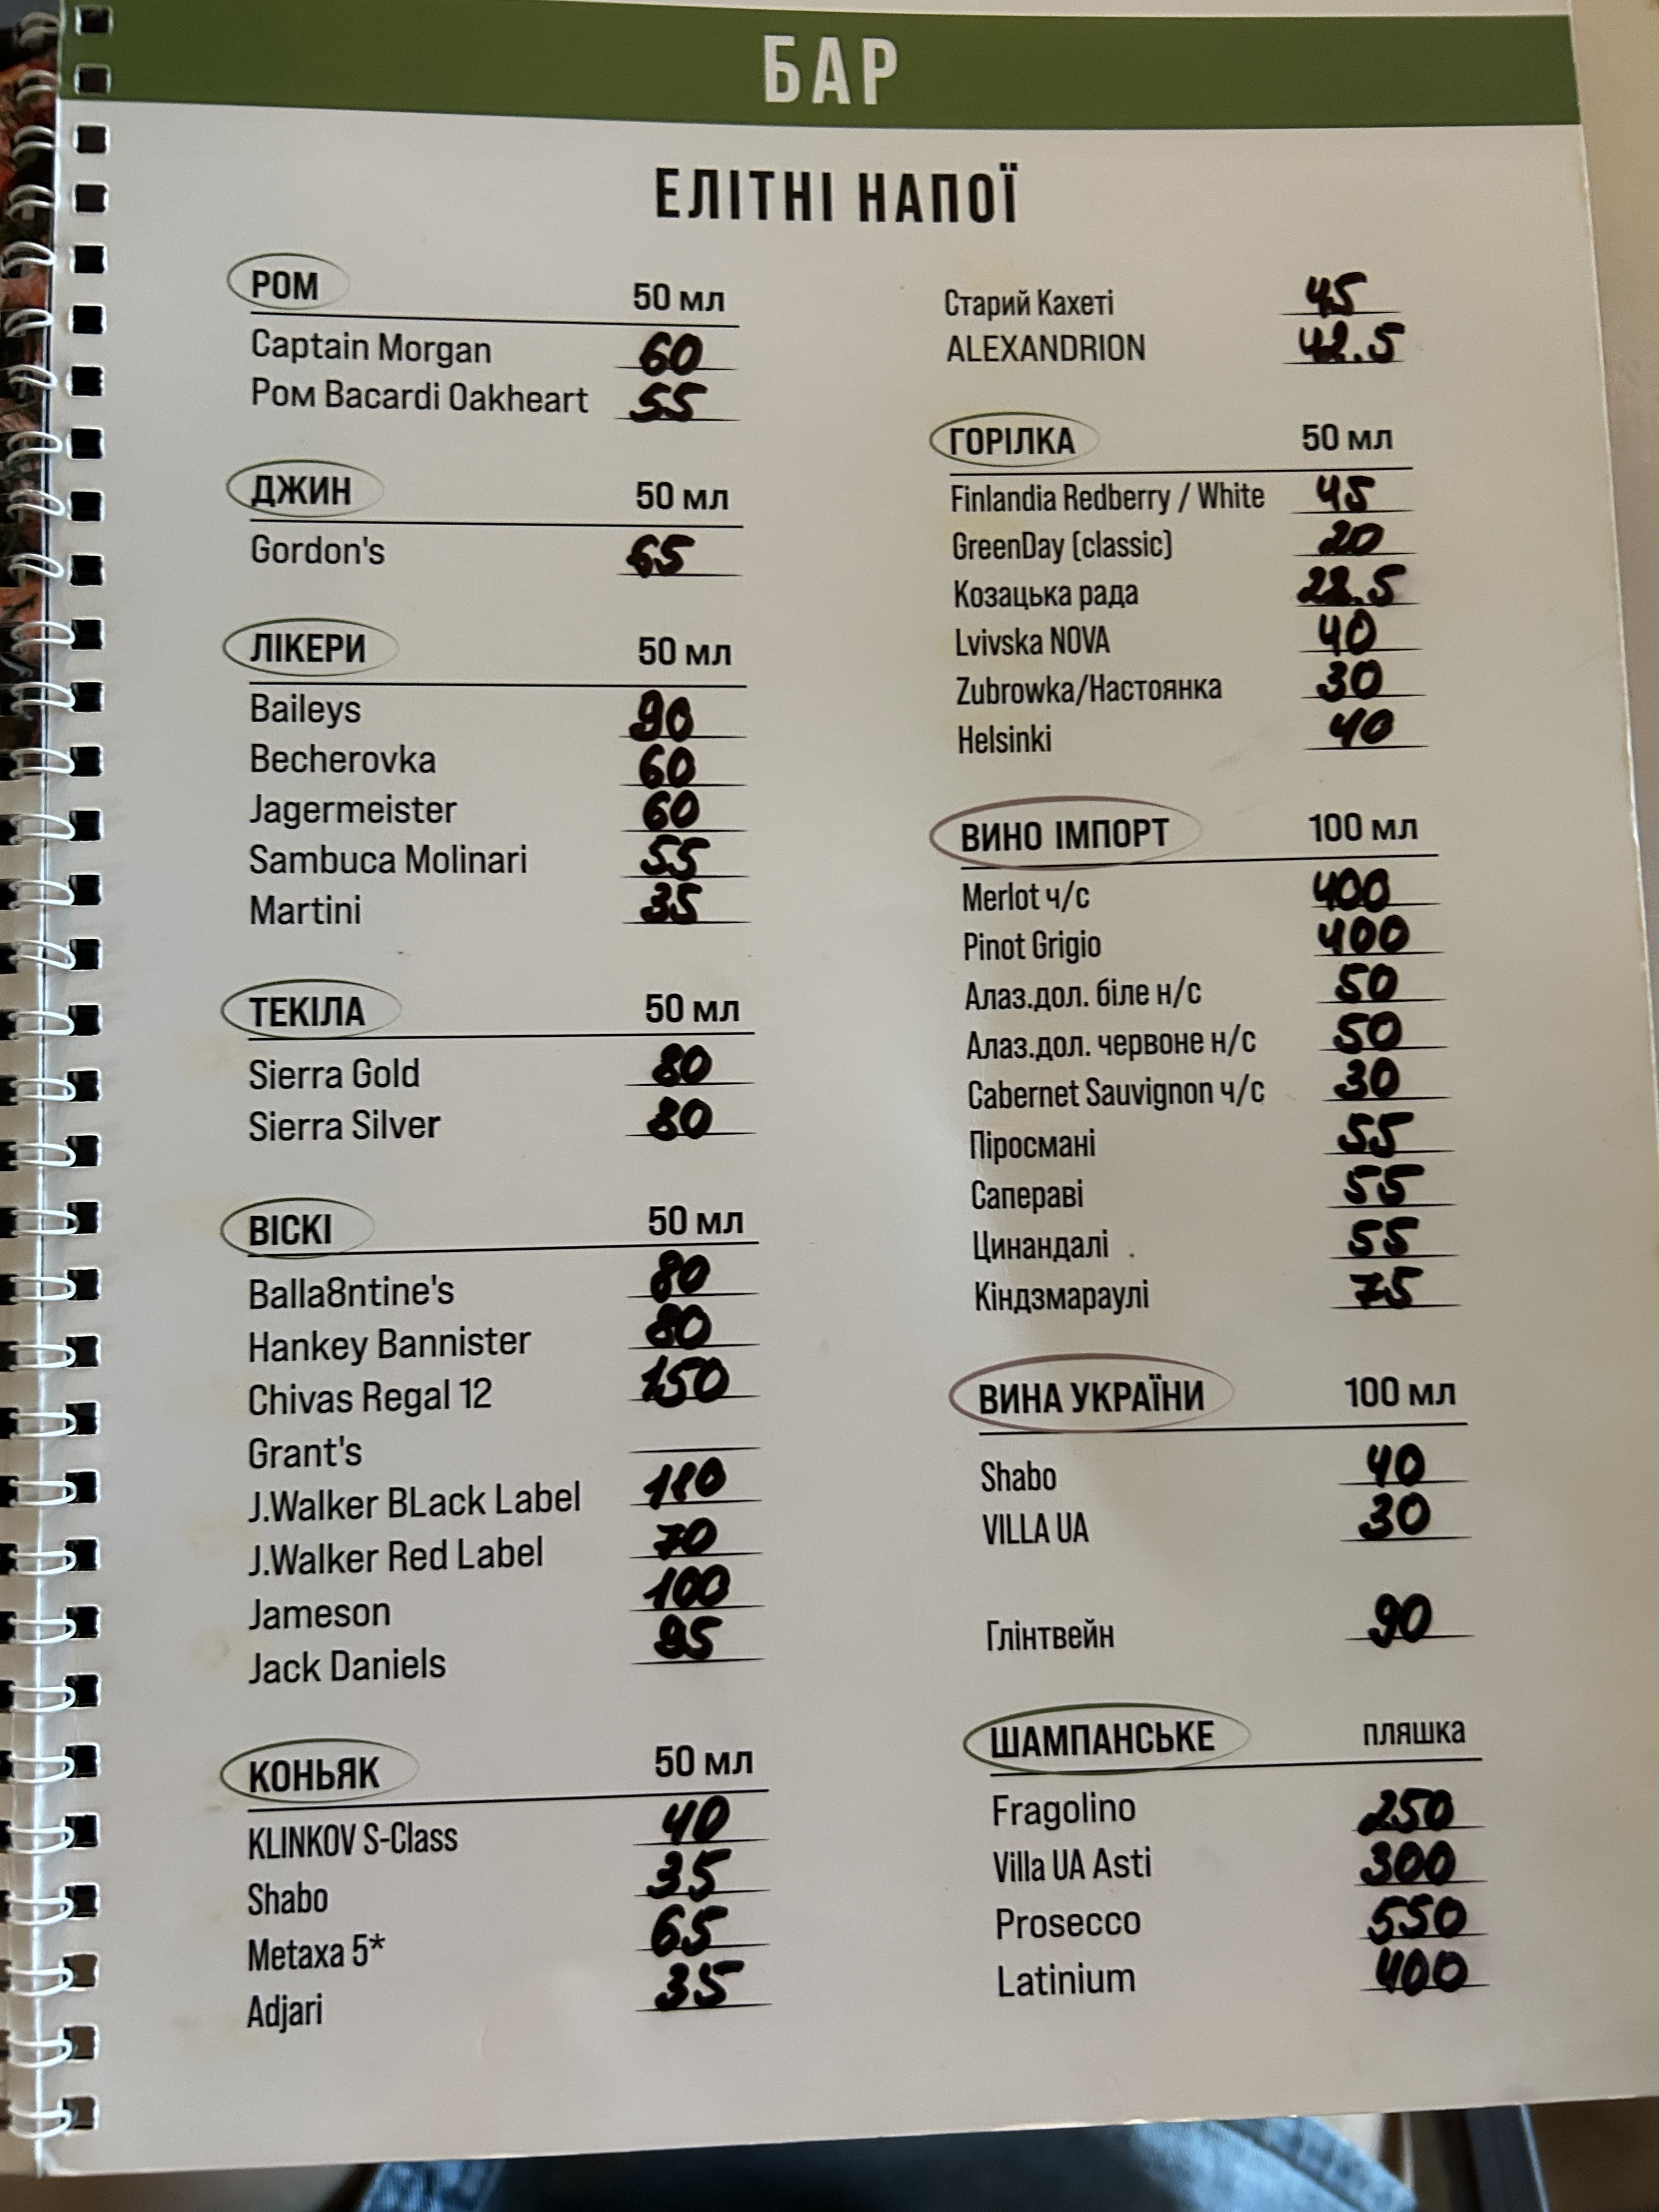 БАР
ЕЛІТНІ НАПОЇ
РОМ 50 мл
Captain Morgan 60
Ром Bacardi Oakheart 55
ДЖИН 50 мл
Gordon's 65
ЛІКЕРИ 50 мл
Baileys 90
Becherovka 60
Jagermeister 60
Sambuca Molinari 55
Martini 35
ТЕКІЛА 50 мл
Sierra Gold 80
Sierra Silver 80
ВІСКІ 50 мл
Balla8ntine's 80
Hankey Bannister 80
Chivas Regal 12 150
Grant's
J.Walker BLack Label 110
J.Walker Red Label 70
Jameson 100
Jack Daniels 95
КОНЬЯК 50 мл
KLINKOV S-Class 40
Shabo 35
Metaxa 5* 65
Adjari 35
Старий Кахеті 45
ALEXANDRION 42.5
ГОРІЛКА 50 мл
Finlandia Redberry / White 45
GreenDay (classic) 20
Козацька рада 22.5
Lvivska NOVA 40
Zubrowka/Настоянка 30
Helsinki 40
ВИНО ІМПОРТ 100 мл
Merlot ч/с 400
Pinot Grigio 400
Алаз.дол. біле н/с 50
Алаз.дол. червоне н/с 50
Cabernet Sauvignon ч/с 30
Піросмані 55
Сапераві 55
Цинандалі . 55
Кіндзмараулі 75
ВИНА УКРАЇНИ 100 мл
Shabo 40
VILLA UA 30
Глінтвейн 90
ШАМПАНСЬКЕ пляшка
Fragolino 250
Villa UA Asti 300
Prosecco 550
Latinium 400